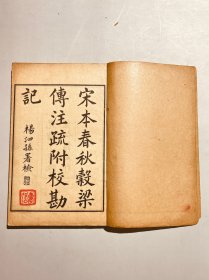 宋本春秋穀梁
傳注疏附校勘
記
楊泗孫署檢